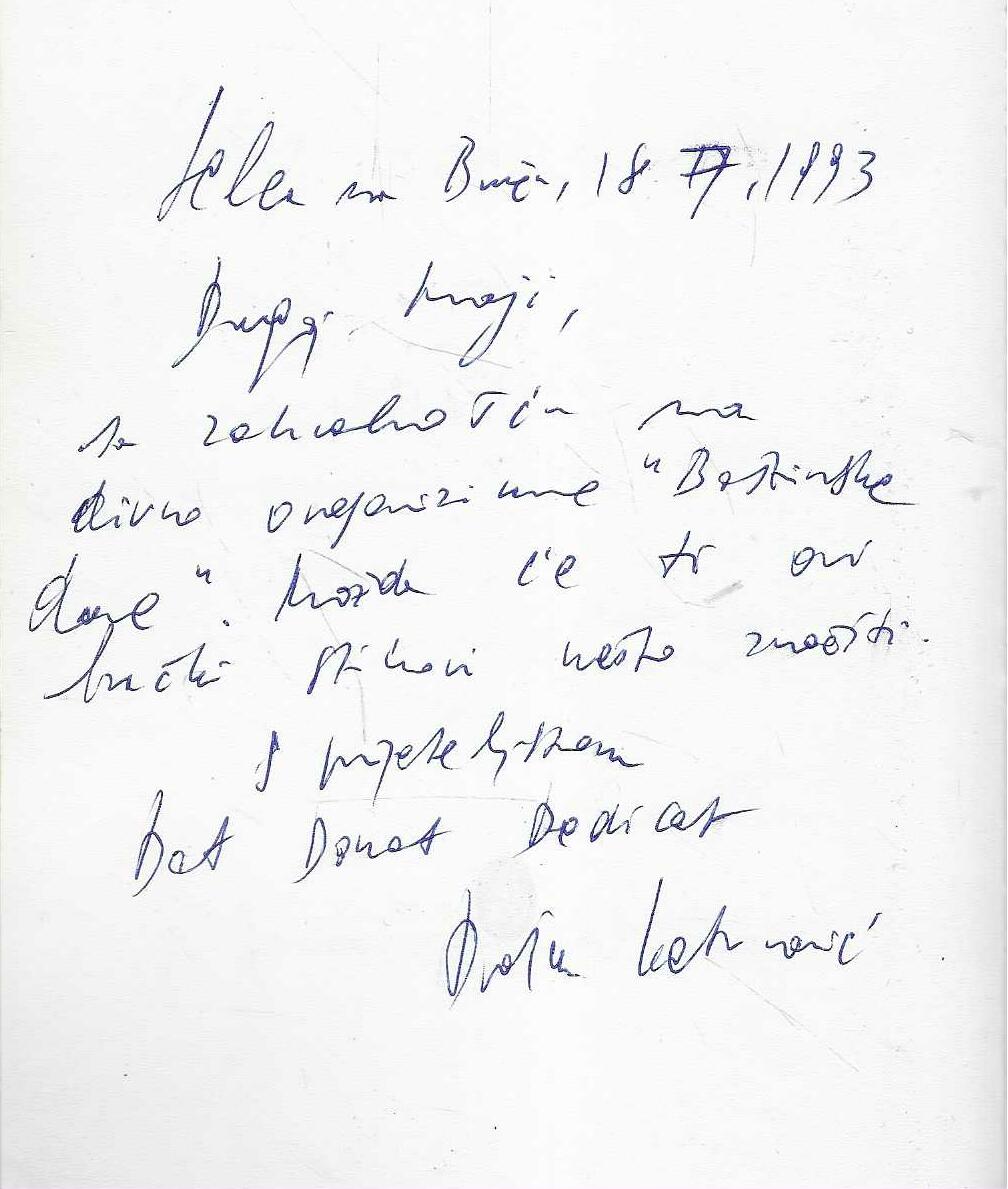 Selca na Braču, 18 IV, 1993
Dragoj Maji,
sa zahvalnošću na
divno organizirane "Baštinske
dane". Možda će ti ovi
brački stihovi nešto značiti.
S prijateljstvom
Dat Donat Dedicat
Draško